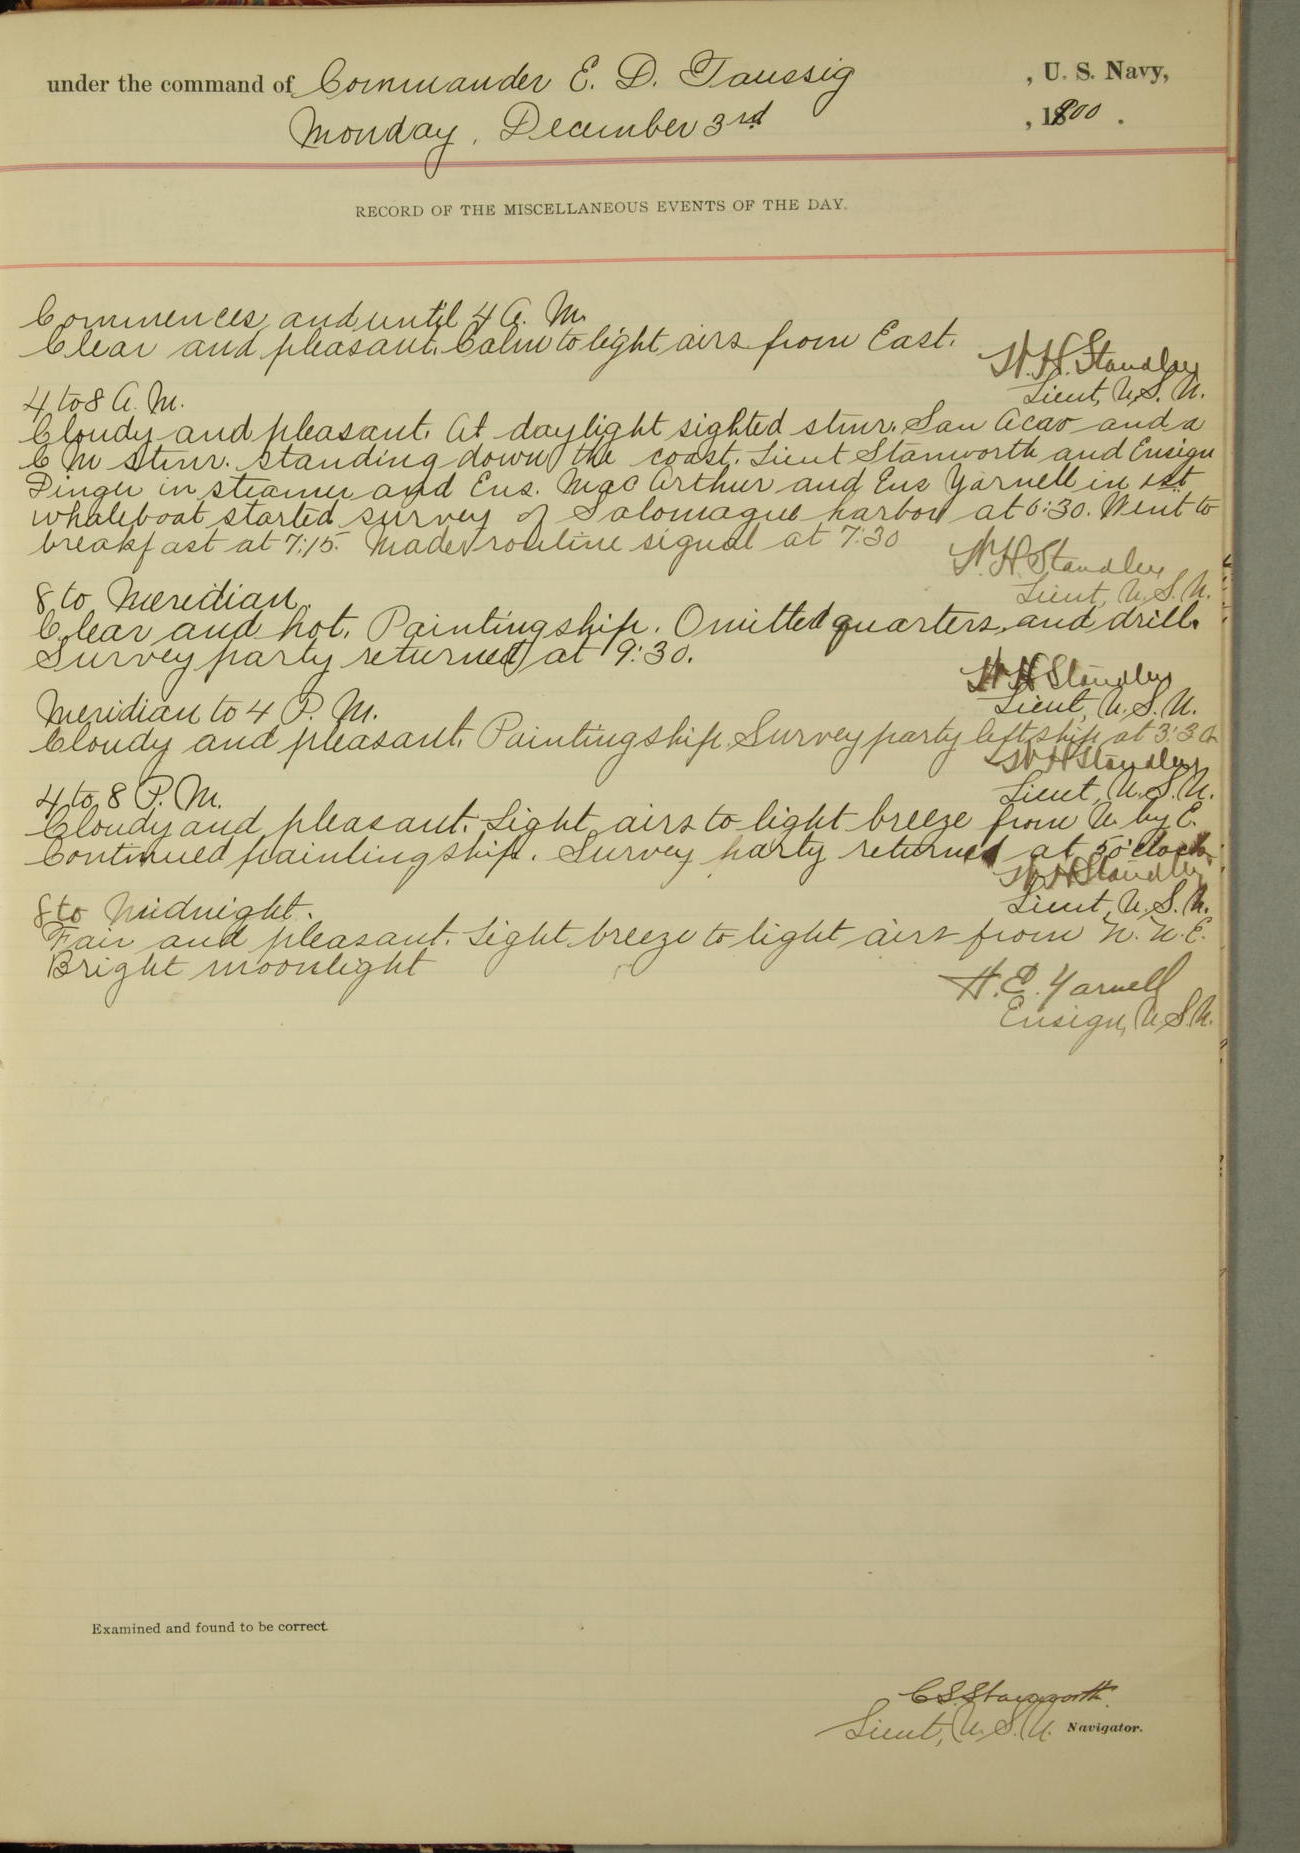 under the command of Commander E. D. Taussig , U. S. Navy,
Monday, December 3rd , 1900 .
RECORD OF THE MISCELLANEOUS EVENTS OF THE DAY.
Commences and until 4 A. M.
Clear and pleasant. Calm to light airs from East.
W. H. Standley
Lieut, U.S.N.
4 to 8 A. M.
Cloudy and pleasant. At daylight sighted stmr. San and a
C M Stmr. standing down the coast. Lieut Stanworth and Ensign
Pinger in steamer and Ens. MacArthur and Ens Yarnell in 1st
whaleboat started survey of Salomague harbor at 6:30. Went to
breakfast at 7:15. Made routine signal at 7:30
W. H. Standley
Lieut, U.S.N.
8 to Meridian.
Clear and hot. Painting ship. Omitted quarters and drill.
Survey party returned at 9:30.
W H Standley
Lieut, U.S.N.
Meridian to 4 P. M.
Cloudy and pleasant. Painting ship. Survey party left ship at 3:30
W H Standley
Lieut, U.S.N.
4 to 8 P. M.
Cloudy and pleasant. Light airs to light breeze from N. by E.
Continued painting ship. Survey party returned at 5 o'clock.
W H Standley
Lieut, U.S.N.
8 to Midnight.
Fair and pleasant. Light breeze to light airs from N. N. E.
Bright moonlight
H. E. Yarnell
Ensign, U.S.N.
Examined and found to be correct.
C S Stanworth
Lieut, U.S.N. Navigator.